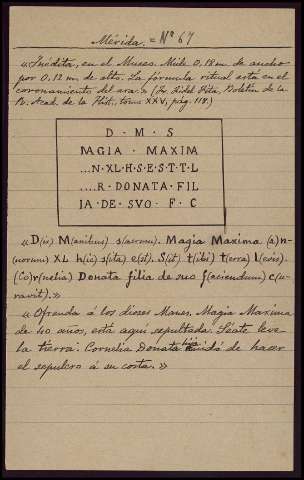 Mérida. = Nº 67
«Inédita, en el Museo. Mide 0,18 m. de ancho
por 0,12 m. de alto. La fórmula ritual está en el
coronamiento del ara.» (Fr. Fidel Fita, Boletín de la
R. Acad. de la Hist., tomo XXV, pág. 118.)
D · M · S
MAGIA · MAXIM
...N · XL · H · S · E · S · T · T · L
....R · DONATA · FIL
IA · DE · SVO · F · C
«D(is) M(anibus) s(acrum). Magia Maxima (a)n-
(norum) XL h(ic) s(ita) e(st). S(it) t(ibi) t(erra) l(evis).
(Co)r(nelia) Donata filia de suo f(aciendum) c(u-
ravit).»
«Ofrenda á los dioses Manes. Magia Maxima
de 40 años, está aquí sepultada. Séate leve
la tierra. Cornelia Donata hija cuidó de hacer
el sepulcro á su costa.»